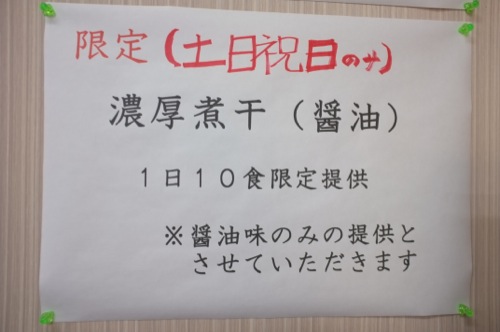 限定(土日祝日のみ)
濃厚煮干(醤油)
1日10食限定提供
※醤油味のみの提供と
させていただきます